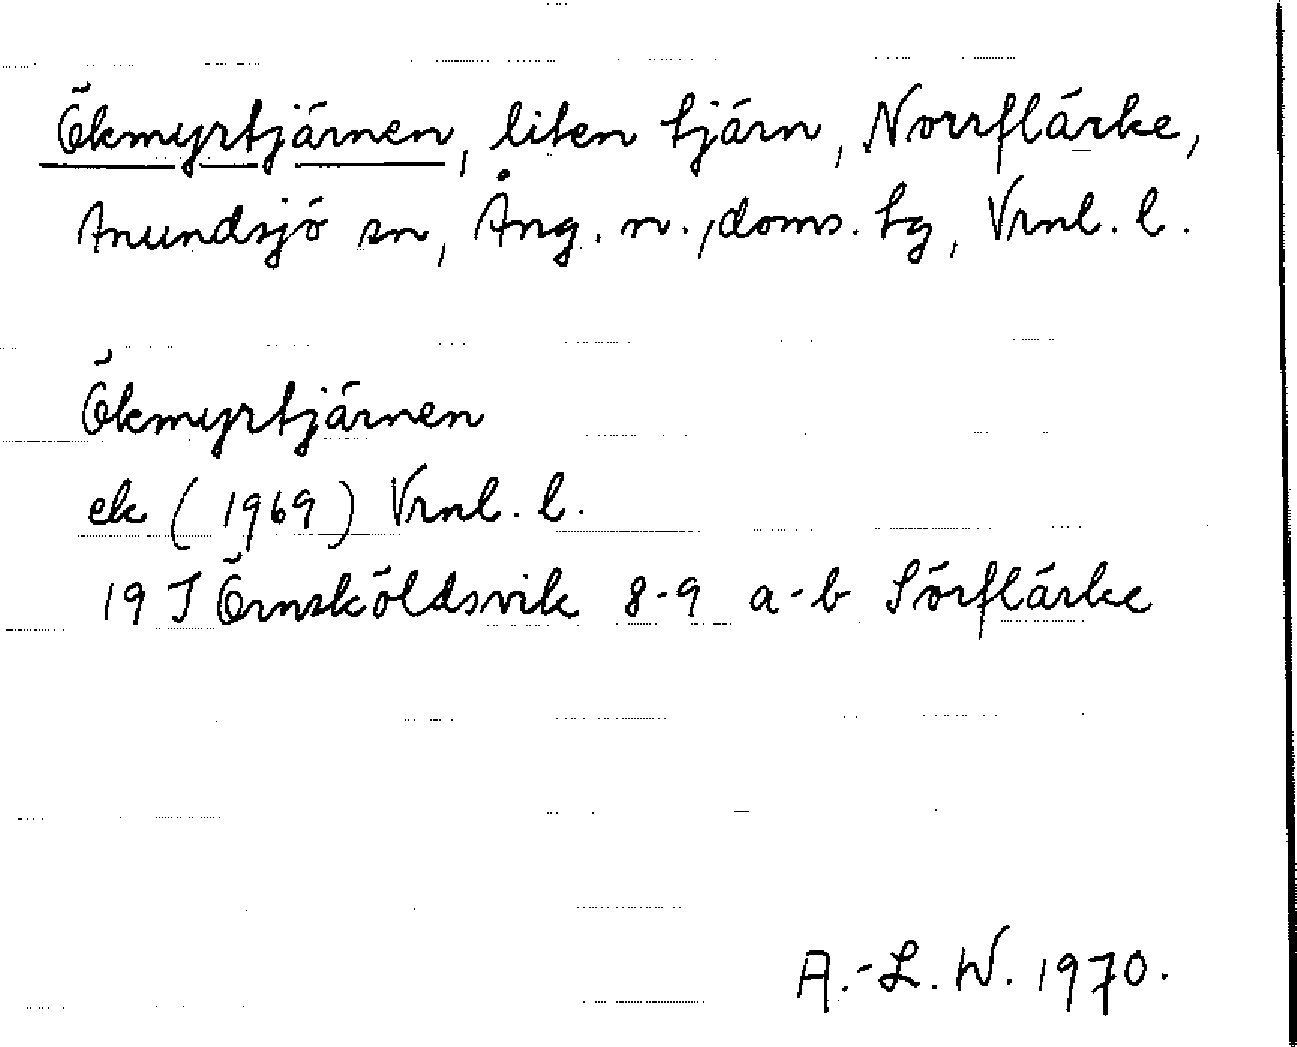 Ökmyrtjärnen, liten tjärn, Norrflärke,
Anundsjö sn, Ång. n., doms. tg, Vrnl. l.
Ökmyrtjärnen
ek (1969) Vrnl. l.
19 J Örnsköldsvik 8-9 a-b Sörflärke
A.-L. W. 1970.